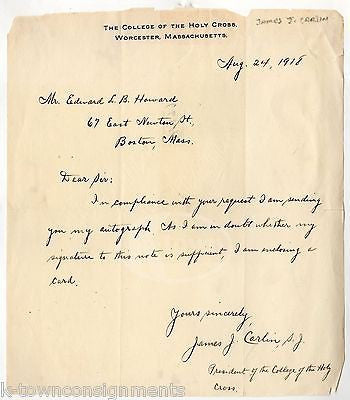 THE COLLEGE OF THE HOLY CROSS,
WORCESTER, MASSACHUSETTS.
JAMES J. CARLIN
Aug. 24, 1918
Mr. Edward L. B. Howard
67 East Newton St.,
Boston, Mass.
Dear Sir:
In compliance with your request I am sending
you my autograph. As I am in doubt whether my
signature to this note is sufficient, I am enclosing a
card.
Yours sincerely,
James J. Carlin, S.J.
President of the College of the Holy
Cross.
k-townconsignments